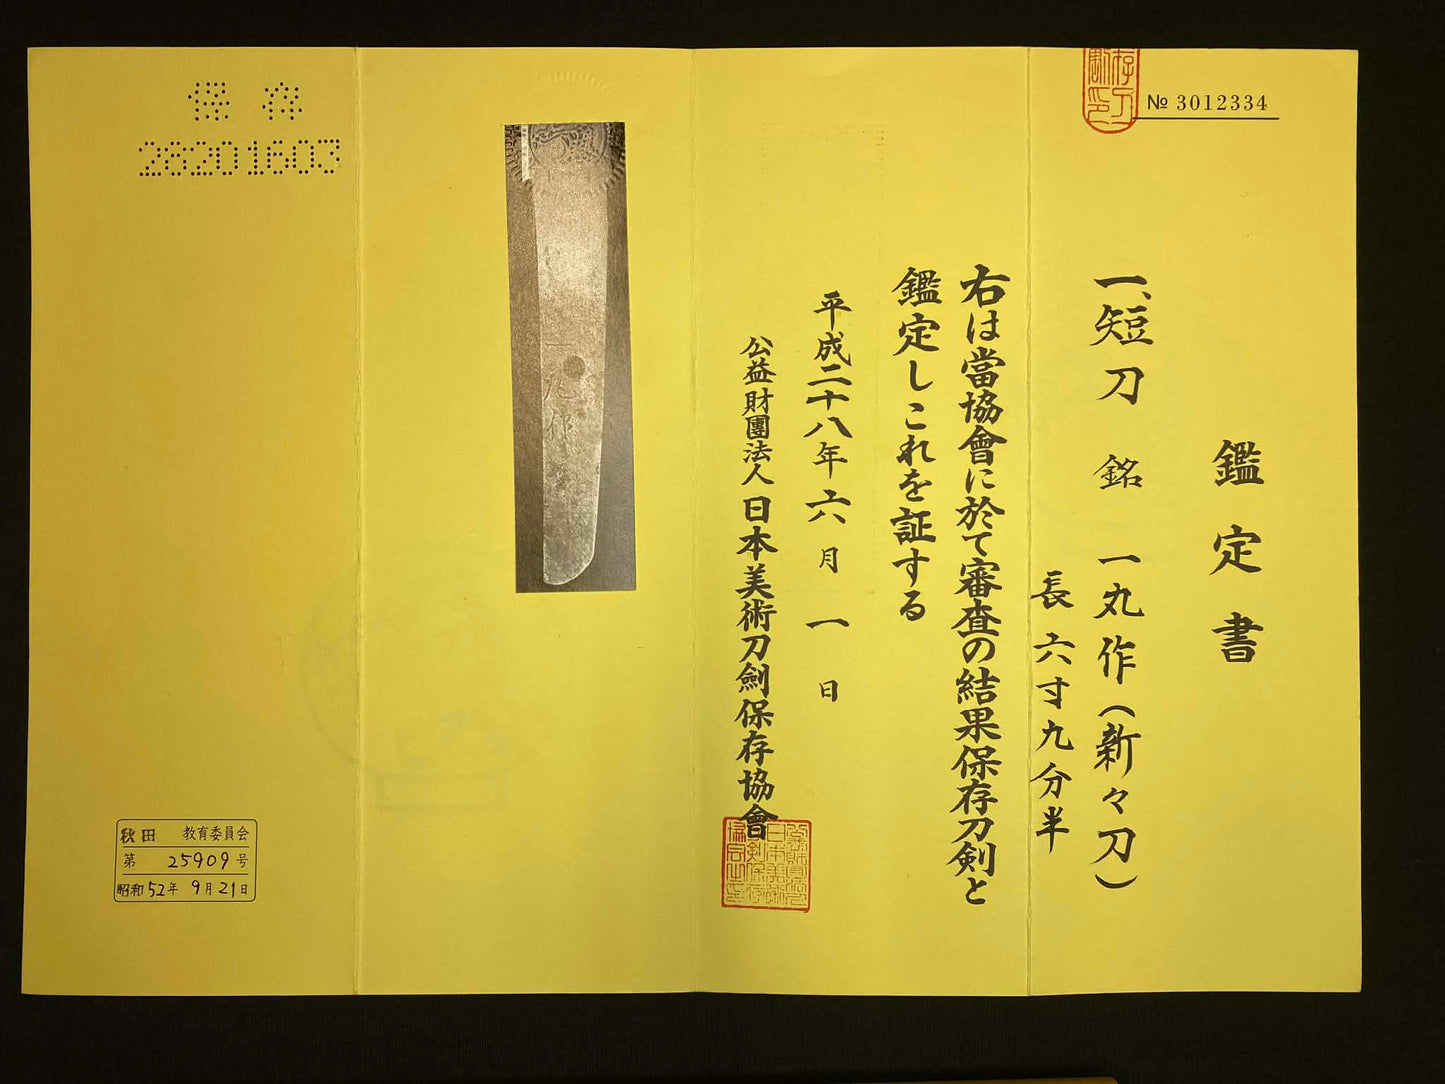 № 3012334
鑑定書
一、短刀 銘 一丸作(新々刀)
長 六寸九分半
右は當協會に於て審査の結果保存刀剣と
鑑定しこれを証する
平成二十八年六月一日
公益財團法人 日本美術刀劍保存協會
保存
26201603
秋田 教育委員会
第 25909 号
昭和52年 9月21日